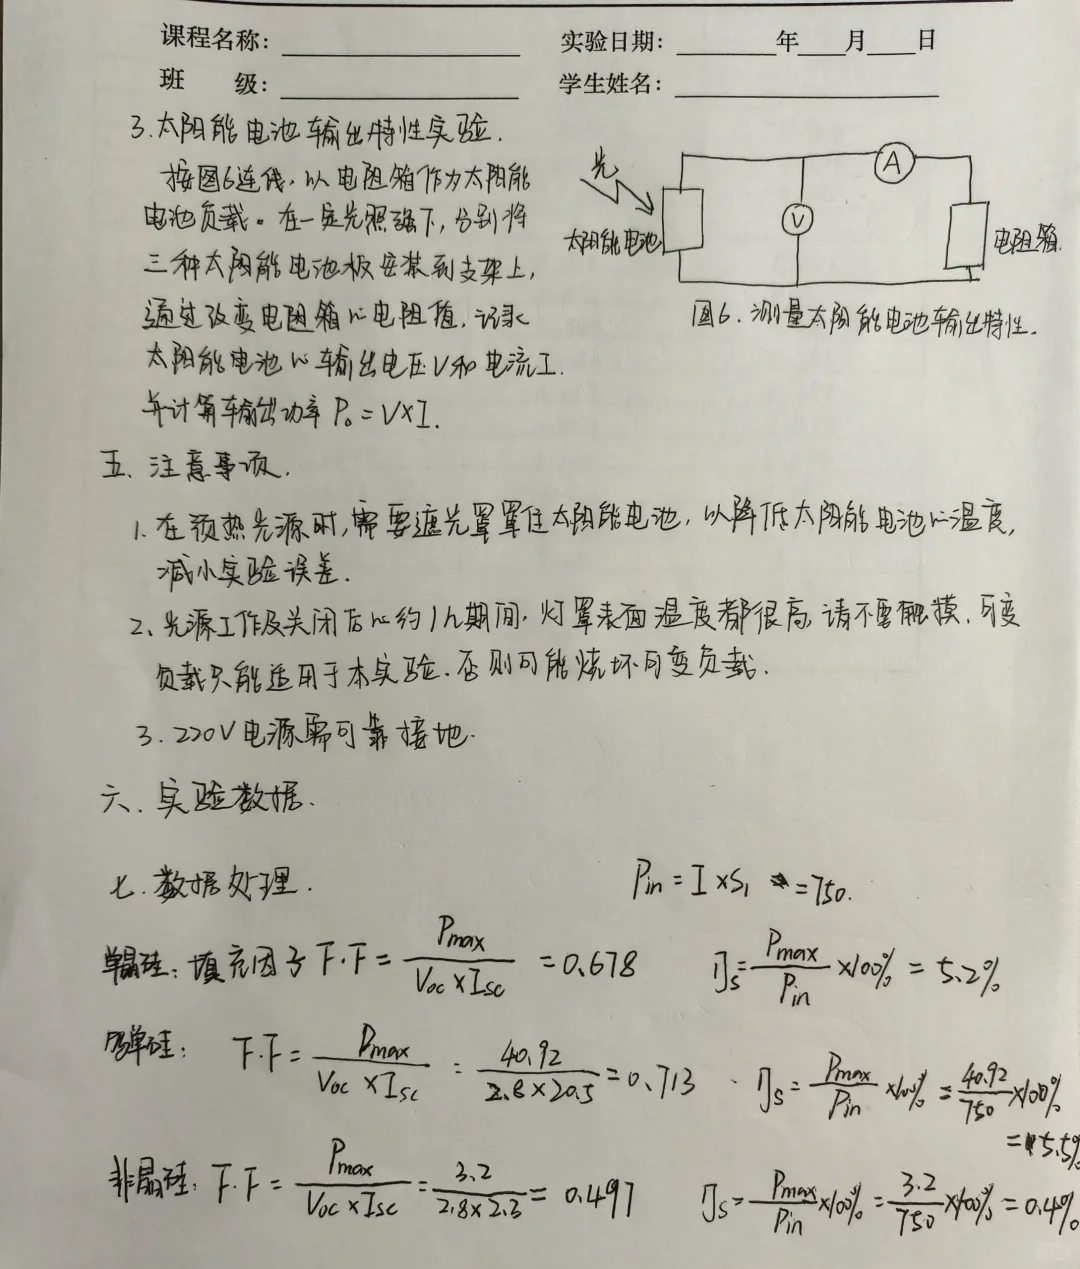 课程名称: 实验日期: 年 月 日
班 级: 学生姓名:
3.太阳能电池输出特性实验.
按图6连线,以电阻箱作为太阳能
电池负载。在一定光照强下,分别将
三种太阳能电池板安装到支架上,
通过改变电阻箱的电阻值,记录
太阳能电池的输出电压V和电流I.
并计算输出功率 P₀=V×I.
光
太阳能电池
V
A
电阻箱
图6.测量太阳能电池输出特性.
五、注意事项.
1.在预热光源时,需要遮光罩罩住太阳能电池,以降低太阳能电池的温度,
减小实验误差.
2、光源工作及关闭后的约1h期间,灯罩表面温度都很高,请不要触摸.可变
负载只能适用于本实验.否则可能烧坏可变负载.
3.220V电源需可靠接地.
六.实验数据.
七.数据处理.
Pin = I×S₁ =750.
单晶硅:填充因子 F·F = Pmax / (Voc×Isc) = 0.678 ηs = Pmax / Pin ×100% = 5.2%
单硅: F·F = Pmax / (Voc×Isc) = 40.92 / (2.8×20.5) = 0.713 . ηs = Pmax / Pin ×100% = 40.92 / 750 ×100%
= 5.5%
非晶硅: F·F = Pmax / (Voc×Isc) = 3.2 / (2.8×2.3) = 0.497 ηs = Pmax / Pin ×100% = 3.2 / 750 ×100% = 0.4%